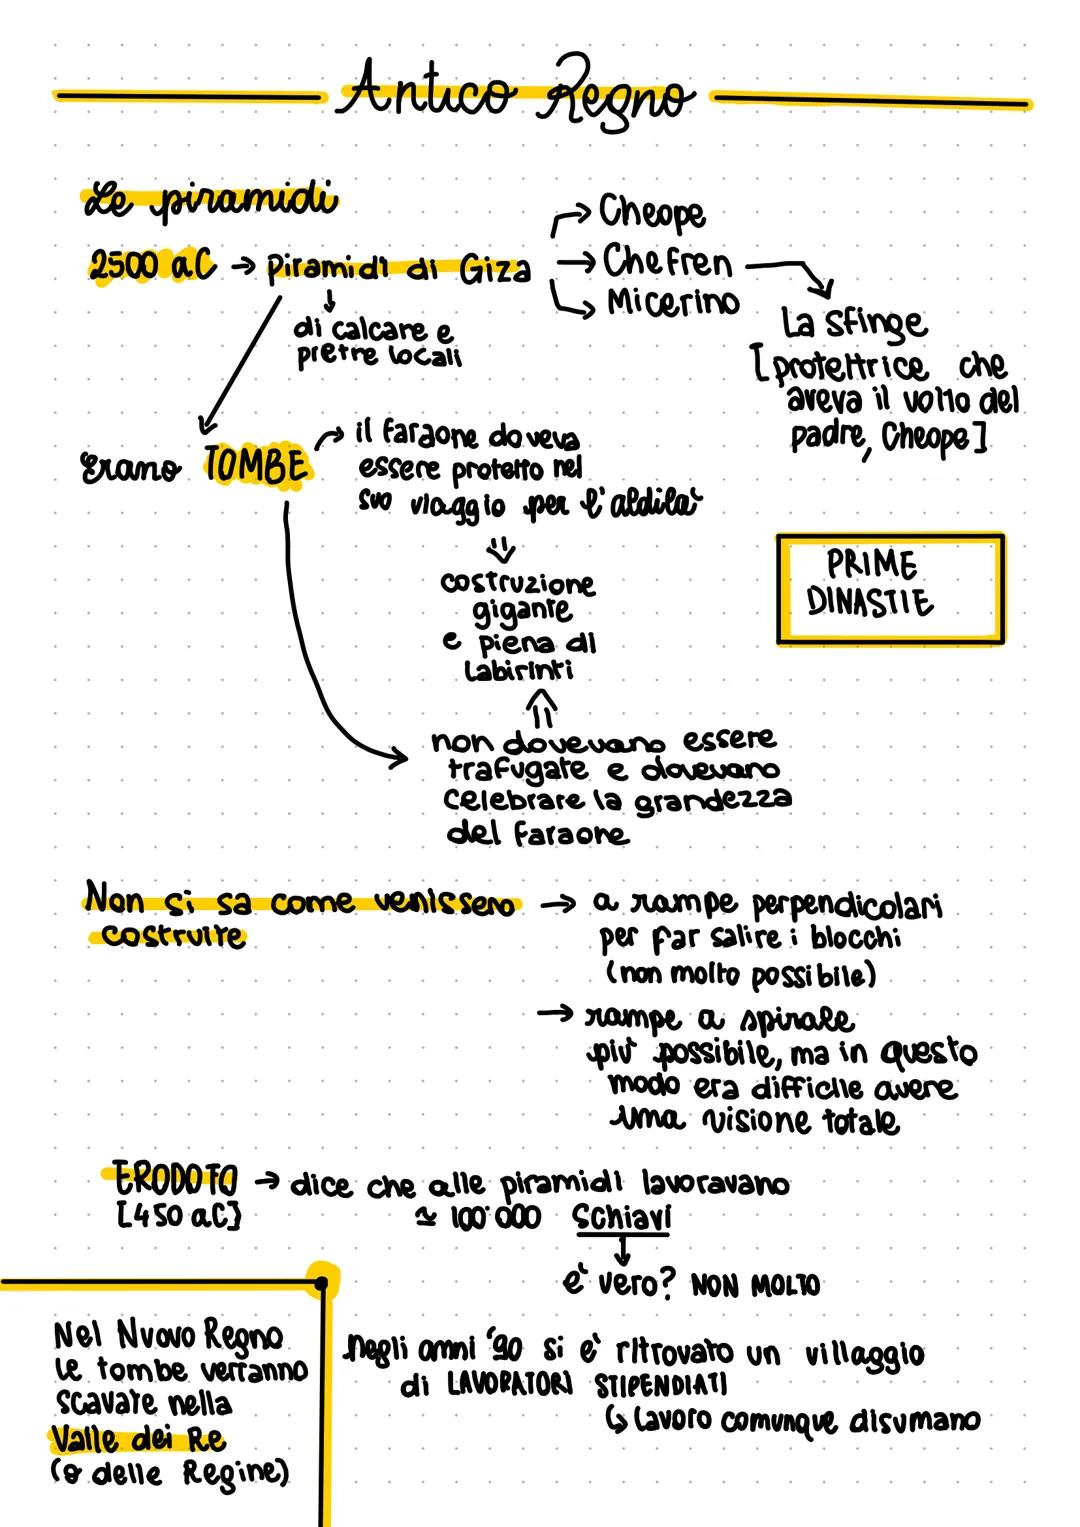 Antico Regno
Le piramidi
2500 aC → Piramidi di Giza
→ Cheope
→ Chefren
→ Micerino
di calcare e
pietre locali
La sfinge
[protettrice che
aveva il volto del
padre, Cheope]
erano TOMBE
→ il faraone doveva
essere protetto nel
suo viaggio per l'aldilà
costruzione
gigante
e piena di
labirinti
PRIME
DINASTIE
non dovevano essere
trafugate e dovevano
celebrare la grandezza
del faraone
Non si sa come venissero
costruite
→ a rampe perpendicolari
per far salire i blocchi
(non molto possibile)
→ rampe a spirale
più possibile, ma in questo
modo era difficile avere
una visione totale
ERODOTO → dice che alle piramidi lavoravano
[450 aC]
≃ 100'000 schiavi
e' vero? NON MOLTO
Nel Nuovo Regno
le tombe verranno
scavate nella
Valle dei Re
(o delle Regine)
negli anni '90 si e' ritrovato un villaggio
di LAVORATORI STIPENDIATI
↳ lavoro comunque disumano